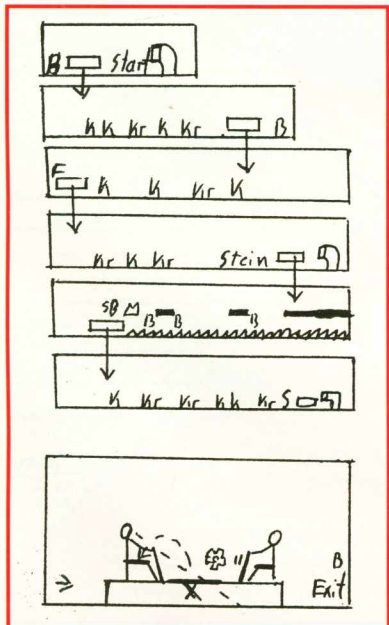 B Start
K K Kr K Kr B
F K K Kr K
Kr K Kr Stein
SB M B B B
K Kr Kr K K Kr S
B
Exit